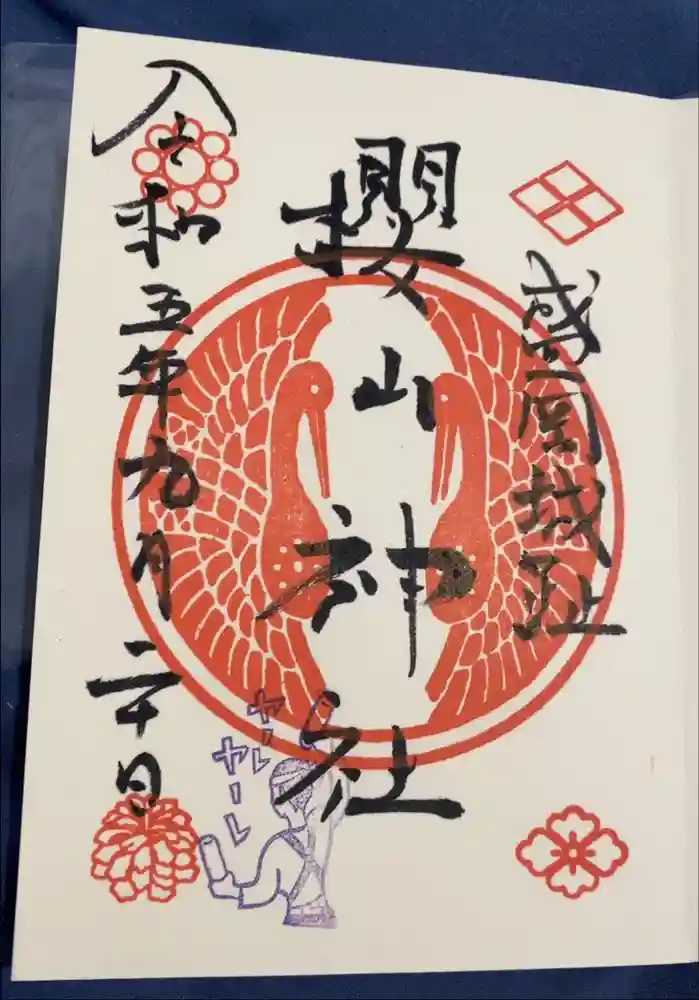 盛岡城址
櫻山神社
令和五年九月二十日
ヤーレ
ヤーレ